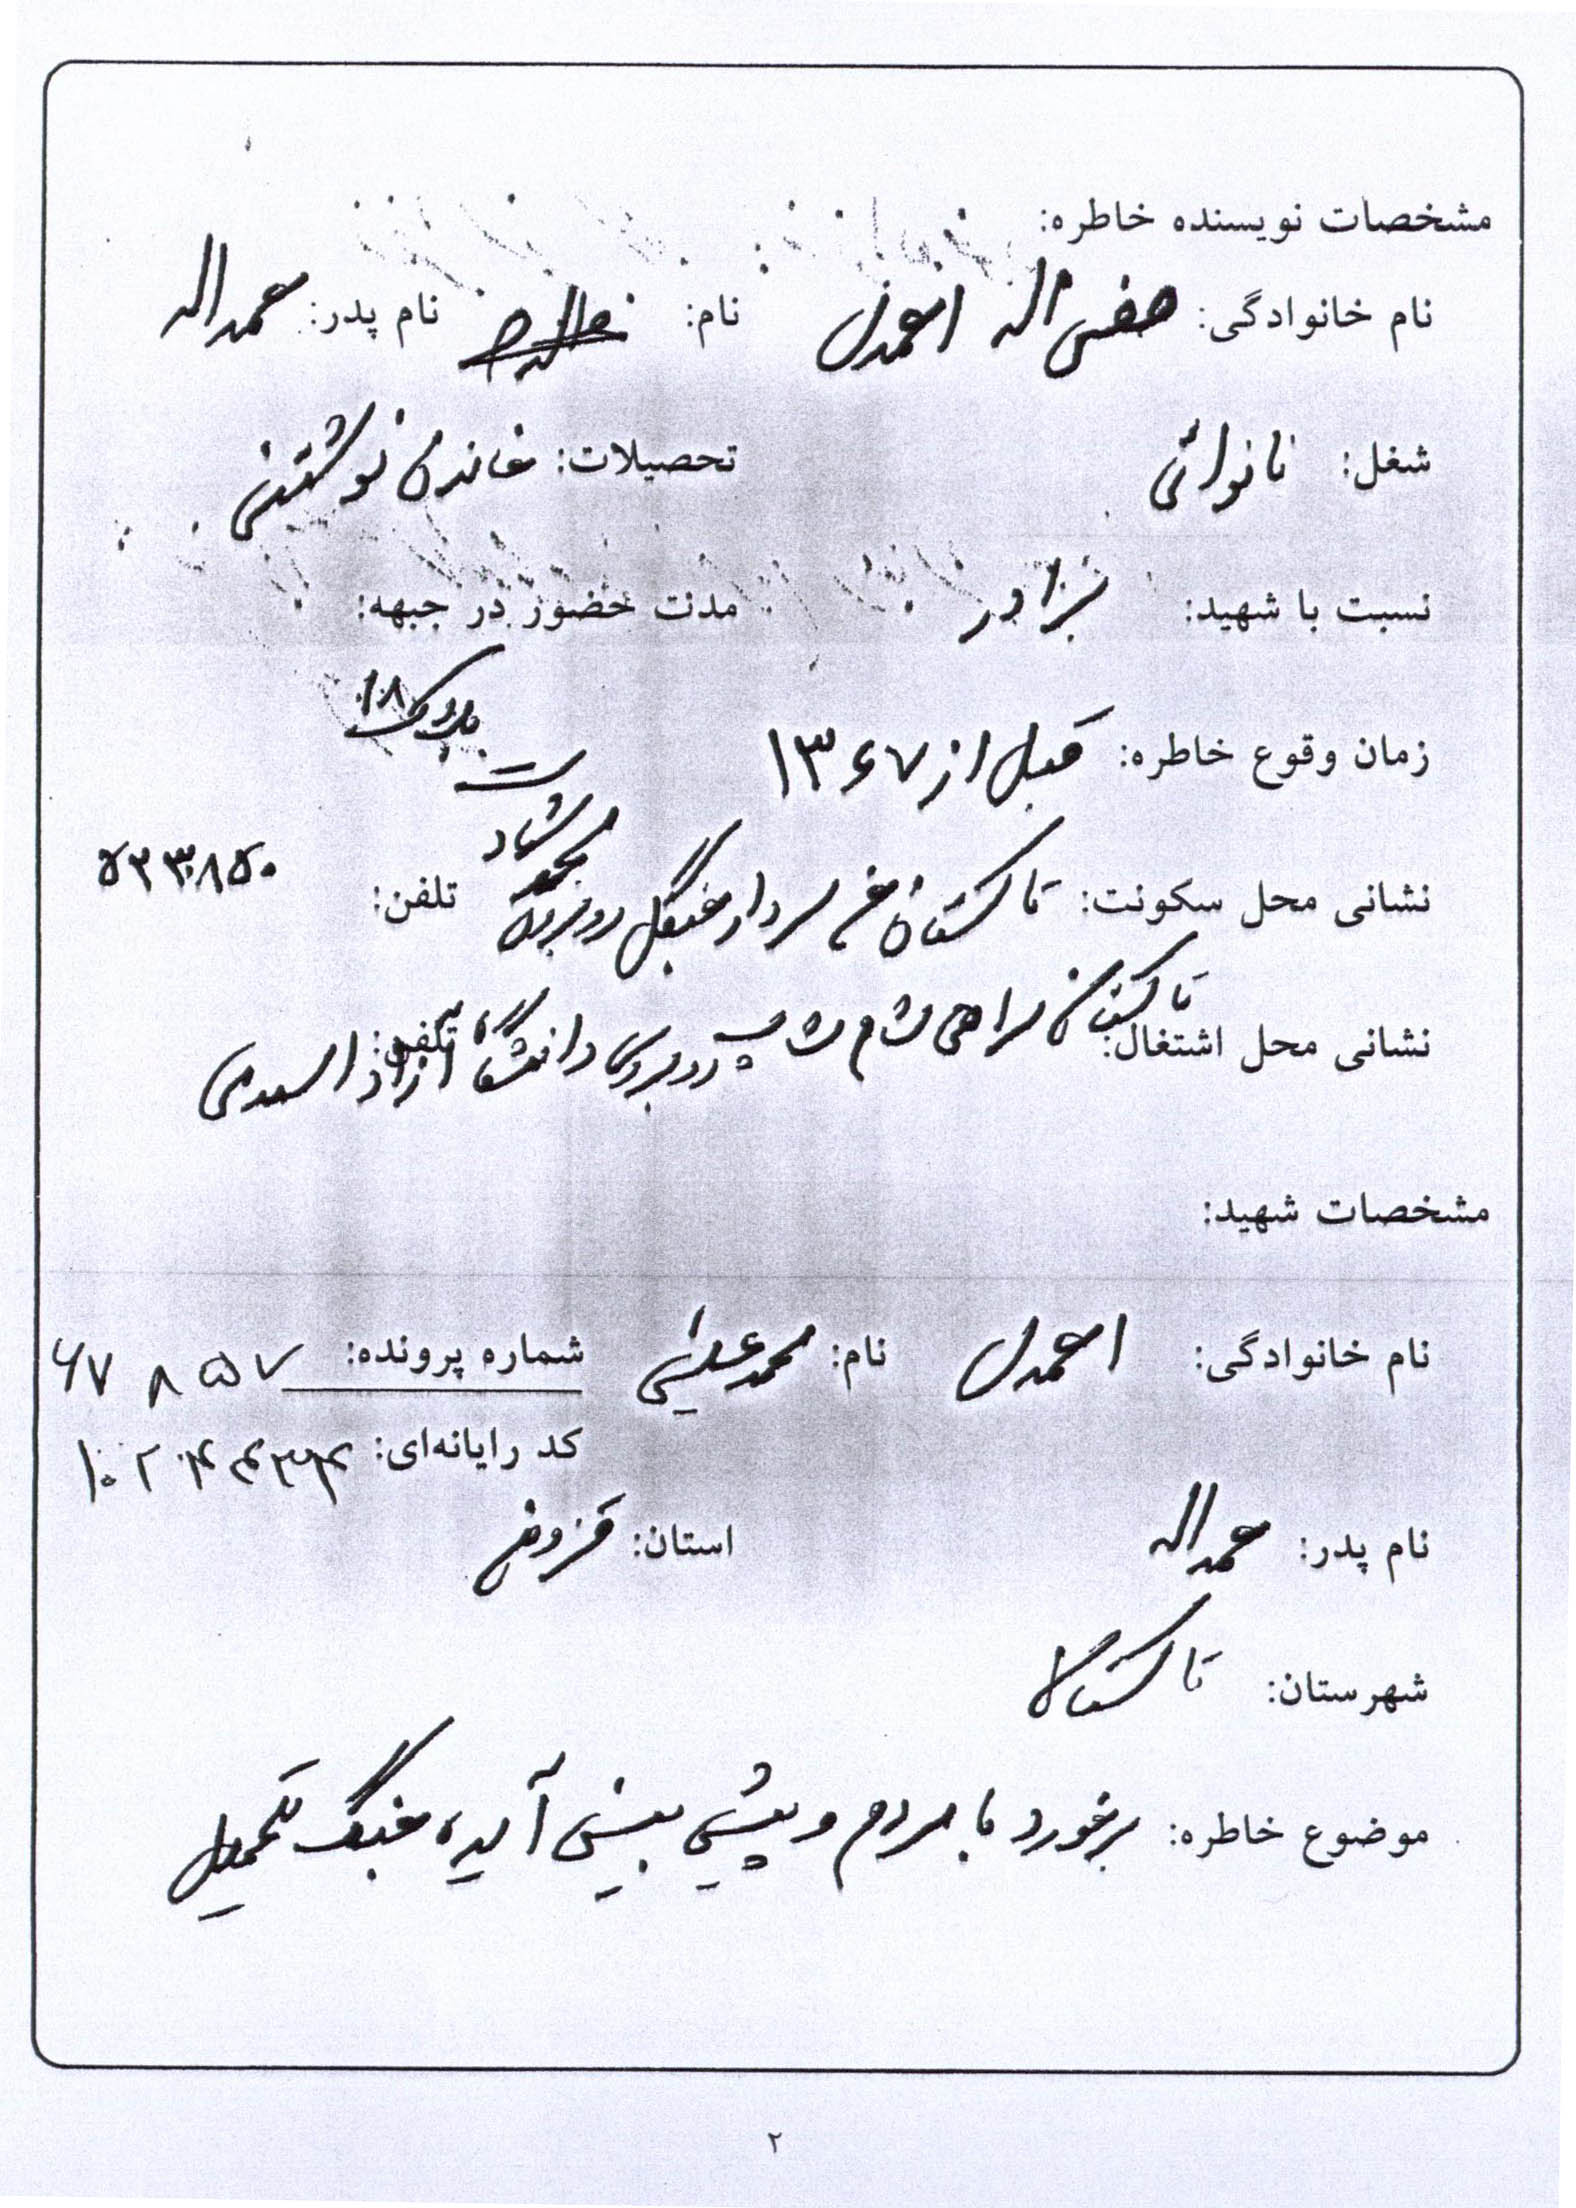 مشخصات نویسنده خاطره:
نام خانوادگی: اله احمدی نام: نام پدر: حمداله
شغل: نانوائی تحصیلات: خاندن نوشتن
نسبت با شهید: برادر مدت حضور در جبهه:
زمان وقوع خاطره: قبل از ۱۳۶۷
پلاک ۱۰۸
نشانی محل سکونت: تاکستان خ سردار جنگل روبروی تلفن: ۵۲۳۰۸۵۰
نشانی محل اشتغال: تاکستان روبروی دانشگاه آزاد اسلامی تلفن:
مشخصات شهید:
نام خانوادگی: احمدی نام: محمدعلی شماره پرونده: ۶۷۸۵۷
کد رایانه‌ای: ۱۰۲۰۴۴۳۴
نام پدر: حمداله استان: قزوین
شهرستان: تاکستان
موضوع خاطره: برخورد با مردم و پیش بینی آینده جنگ تحمیلی
۲